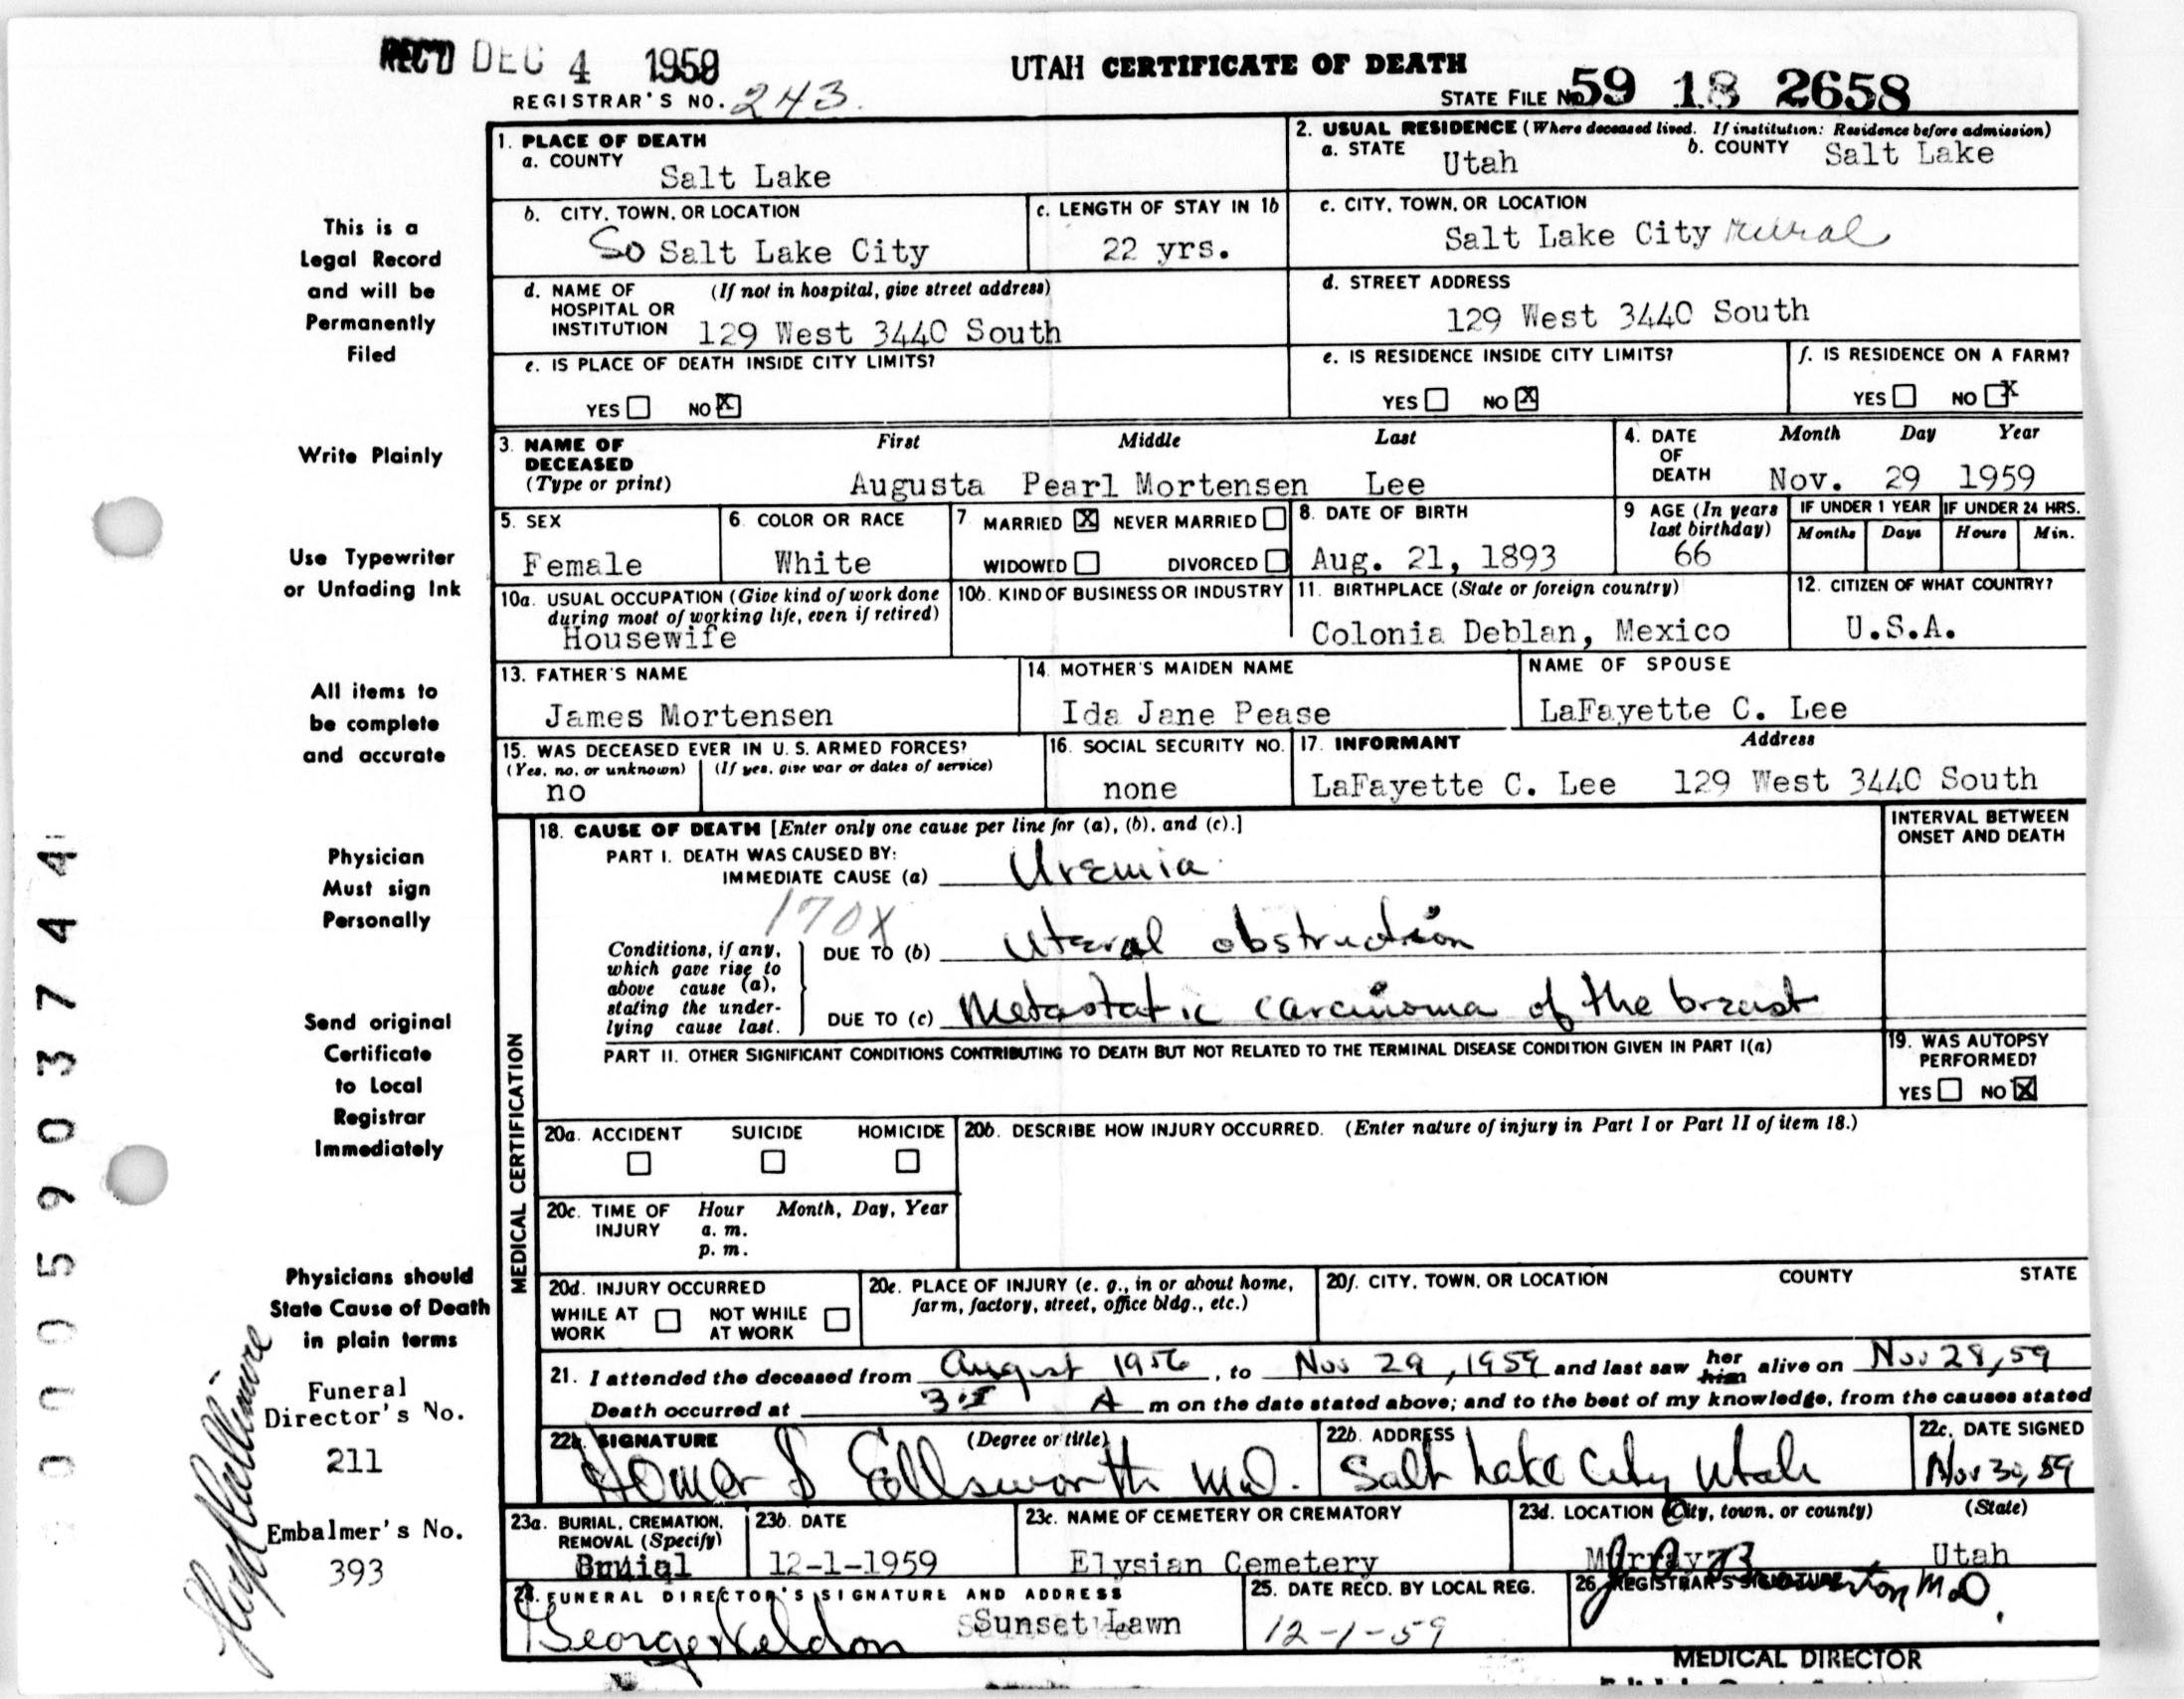 REC'D DEC 4 1959
UTAH CERTIFICATE OF DEATH
REGISTRAR'S NO. 243.
STATE FILE No 59 18 2658
1. PLACE OF DEATH
a. COUNTY
Salt Lake
2. USUAL RESIDENCE (Where deceased lived. If institution: Residence before admission)
a. STATE Utah b. COUNTY Salt Lake
b. CITY, TOWN, OR LOCATION
So Salt Lake City
c. LENGTH OF STAY IN 1b
22 yrs.
c. CITY, TOWN, OR LOCATION
Salt Lake City rural
d. NAME OF HOSPITAL OR INSTITUTION (If not in hospital, give street address)
129 West 3440 South
d. STREET ADDRESS
129 West 3440 South
e. IS PLACE OF DEATH INSIDE CITY LIMITS?
YES NO X
e. IS RESIDENCE INSIDE CITY LIMITS?
YES NO X
f. IS RESIDENCE ON A FARM?
YES NO X
3. NAME OF DECEASED (Type or print)
First Middle Last
Augusta Pearl Mortensen Lee
4. DATE OF DEATH
Month Day Year
Nov. 29 1959
5. SEX
Female
6. COLOR OR RACE
White
7. MARRIED X NEVER MARRIED
WIDOWED DIVORCED
8. DATE OF BIRTH
Aug. 21, 1893
9 AGE (In years last birthday)
66
IF UNDER 1 YEAR
Months Days
IF UNDER 24 HRS.
Hours Min.
10a. USUAL OCCUPATION (Give kind of work done during most of working life, even if retired)
Housewife
10b. KIND OF BUSINESS OR INDUSTRY
11. BIRTHPLACE (State or foreign country)
Colonia Deblan, Mexico
12. CITIZEN OF WHAT COUNTRY?
U.S.A.
13. FATHER'S NAME
James Mortensen
14. MOTHER'S MAIDEN NAME
Ida Jane Pease
NAME OF SPOUSE
LaFayette C. Lee
15. WAS DECEASED EVER IN U. S. ARMED FORCES?
(Yes, no, or unknown) (If yes, give war or dates of service)
no
16. SOCIAL SECURITY NO.
none
17. INFORMANT Address
LaFayette C. Lee 129 West 3440 South
MEDICAL CERTIFICATION
18. CAUSE OF DEATH [Enter only one cause per line for (a), (b), and (c).]
INTERVAL BETWEEN ONSET AND DEATH
PART I. DEATH WAS CAUSED BY:
IMMEDIATE CAUSE (a) Uremia
170X
Conditions, if any, which gave rise to above cause (a), stating the underlying cause last.
DUE TO (b) Uteral obstruction
DUE TO (c) Metastatic carcinoma of the breast
PART II. OTHER SIGNIFICANT CONDITIONS CONTRIBUTING TO DEATH BUT NOT RELATED TO THE TERMINAL DISEASE CONDITION GIVEN IN PART I(a)
19. WAS AUTOPSY PERFORMED?
YES NO X
20a. ACCIDENT SUICIDE HOMICIDE
20b. DESCRIBE HOW INJURY OCCURRED. (Enter nature of injury in Part I or Part II of item 18.)
20c. TIME OF INJURY Hour Month, Day, Year
a. m.
p. m.
20d. INJURY OCCURRED
WHILE AT WORK NOT WHILE AT WORK
20e. PLACE OF INJURY (e. g., in or about home, farm, factory, street, office bldg., etc.)
20f. CITY, TOWN, OR LOCATION COUNTY STATE
21. I attended the deceased from August 1956, to Nov 29, 1959 and last saw her him alive on Nov 28, 59
Death occurred at A m on the date stated above; and to the best of my knowledge, from the causes stated
22a. SIGNATURE (Degree or title)
Homer S Ellsworth M.D.
22b. ADDRESS
Salt Lake City Utah
22c. DATE SIGNED
Nov 30, 59
23a. BURIAL, CREMATION, REMOVAL (Specify)
Burial
23b. DATE
12-1-1959
23c. NAME OF CEMETERY OR CREMATORY
Elysian Cemetery
23d. LOCATION (City, town, or county) (State)
Murray Utah
24. FUNERAL DIRECTOR'S SIGNATURE AND ADDRESS
Sunset Lawn
25. DATE RECD. BY LOCAL REG.
12-1-59
26. REGISTRAR'S SIGNATURE
M.D.
MEDICAL DIRECTOR
This is a
Legal Record
and will be
Permanently
Filed
Write Plainly
Use Typewriter
or Unfading Ink
All items to
be complete
and accurate
Physician
Must sign
Personally
Send original
Certificate
to Local
Registrar
Immediately
Physicians should
State Cause of Death
in plain terms
Funeral
Director's No.
211
Embalmer's No.
393